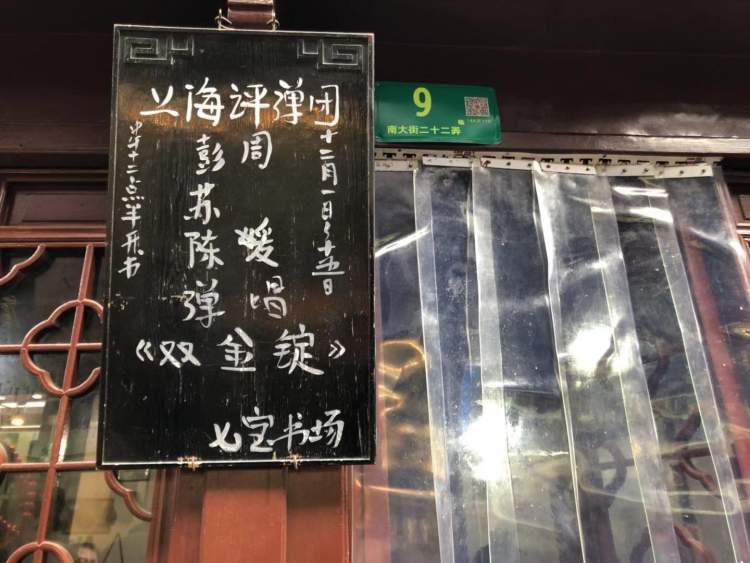 上海评弹团
十二月一日~十五日
周媛唱
彭苏陈弹
中午十二点半开书
《双金锭》
七宝书场
9
南大街二十二弄